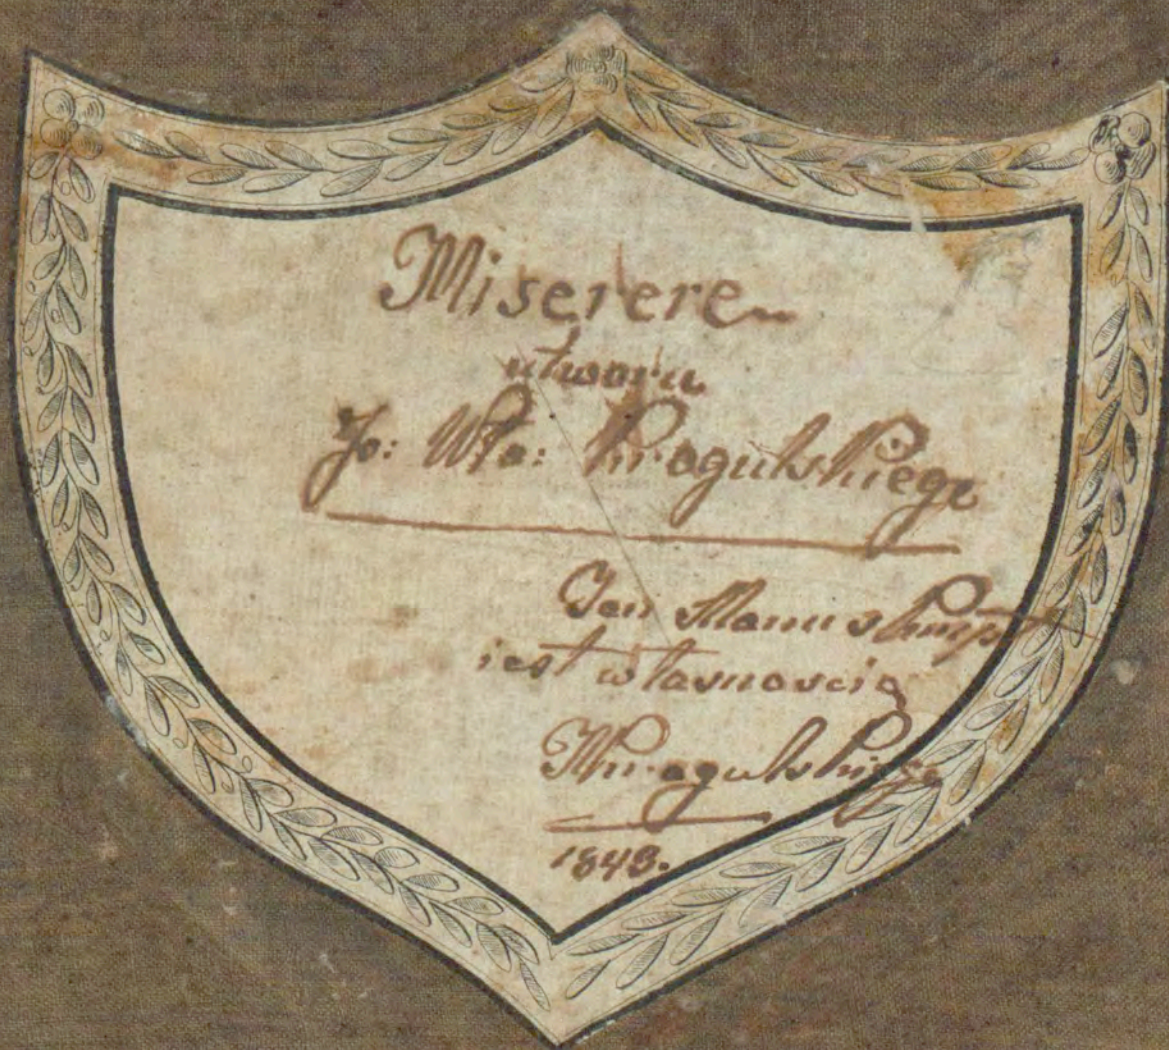 Miserere
utworu
Jo: Wła: Krogulskiego
Ten Manuskrypt
iest własnością
Krogulskiego
1843.